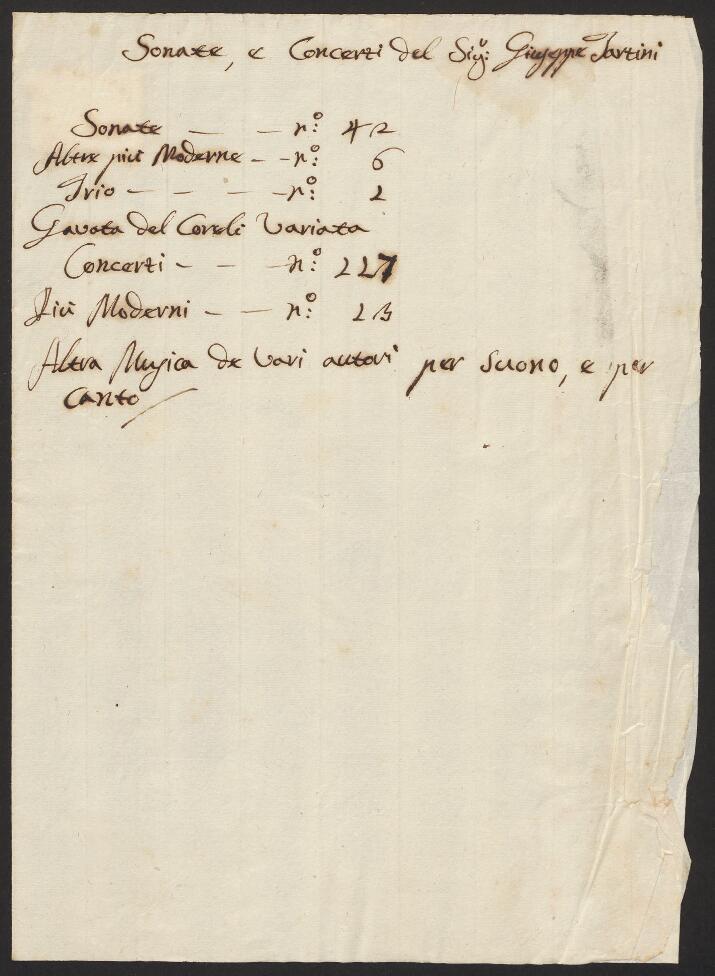 Sonate, e Concerti del Sig.r Giuseppe Tartini
Sonate — — n.o: 42
Altre più Moderne - - n.o: 6
Trio - - - - n.o: 2
Gavota del Coreli Variata
Concerti - - - n.o: 227
Più Moderni - - - n.o: 23
Altra Musica de Vari autori per suono, e per
Canto